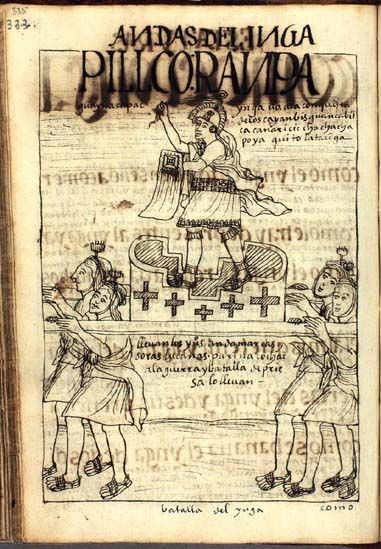 335
333
ANDAS DEL INGA
PILLCO RANPA
guayna capac ynga ua a la conquista
de los cayanbis guanca bil
ca cañari ciccho chacha
poya quito lataciga
lleuan los yns andamarcas
soras lucanas parinacochas
a la guerra y batalla de prie
sa lo lleuan
batalla del ynga
como